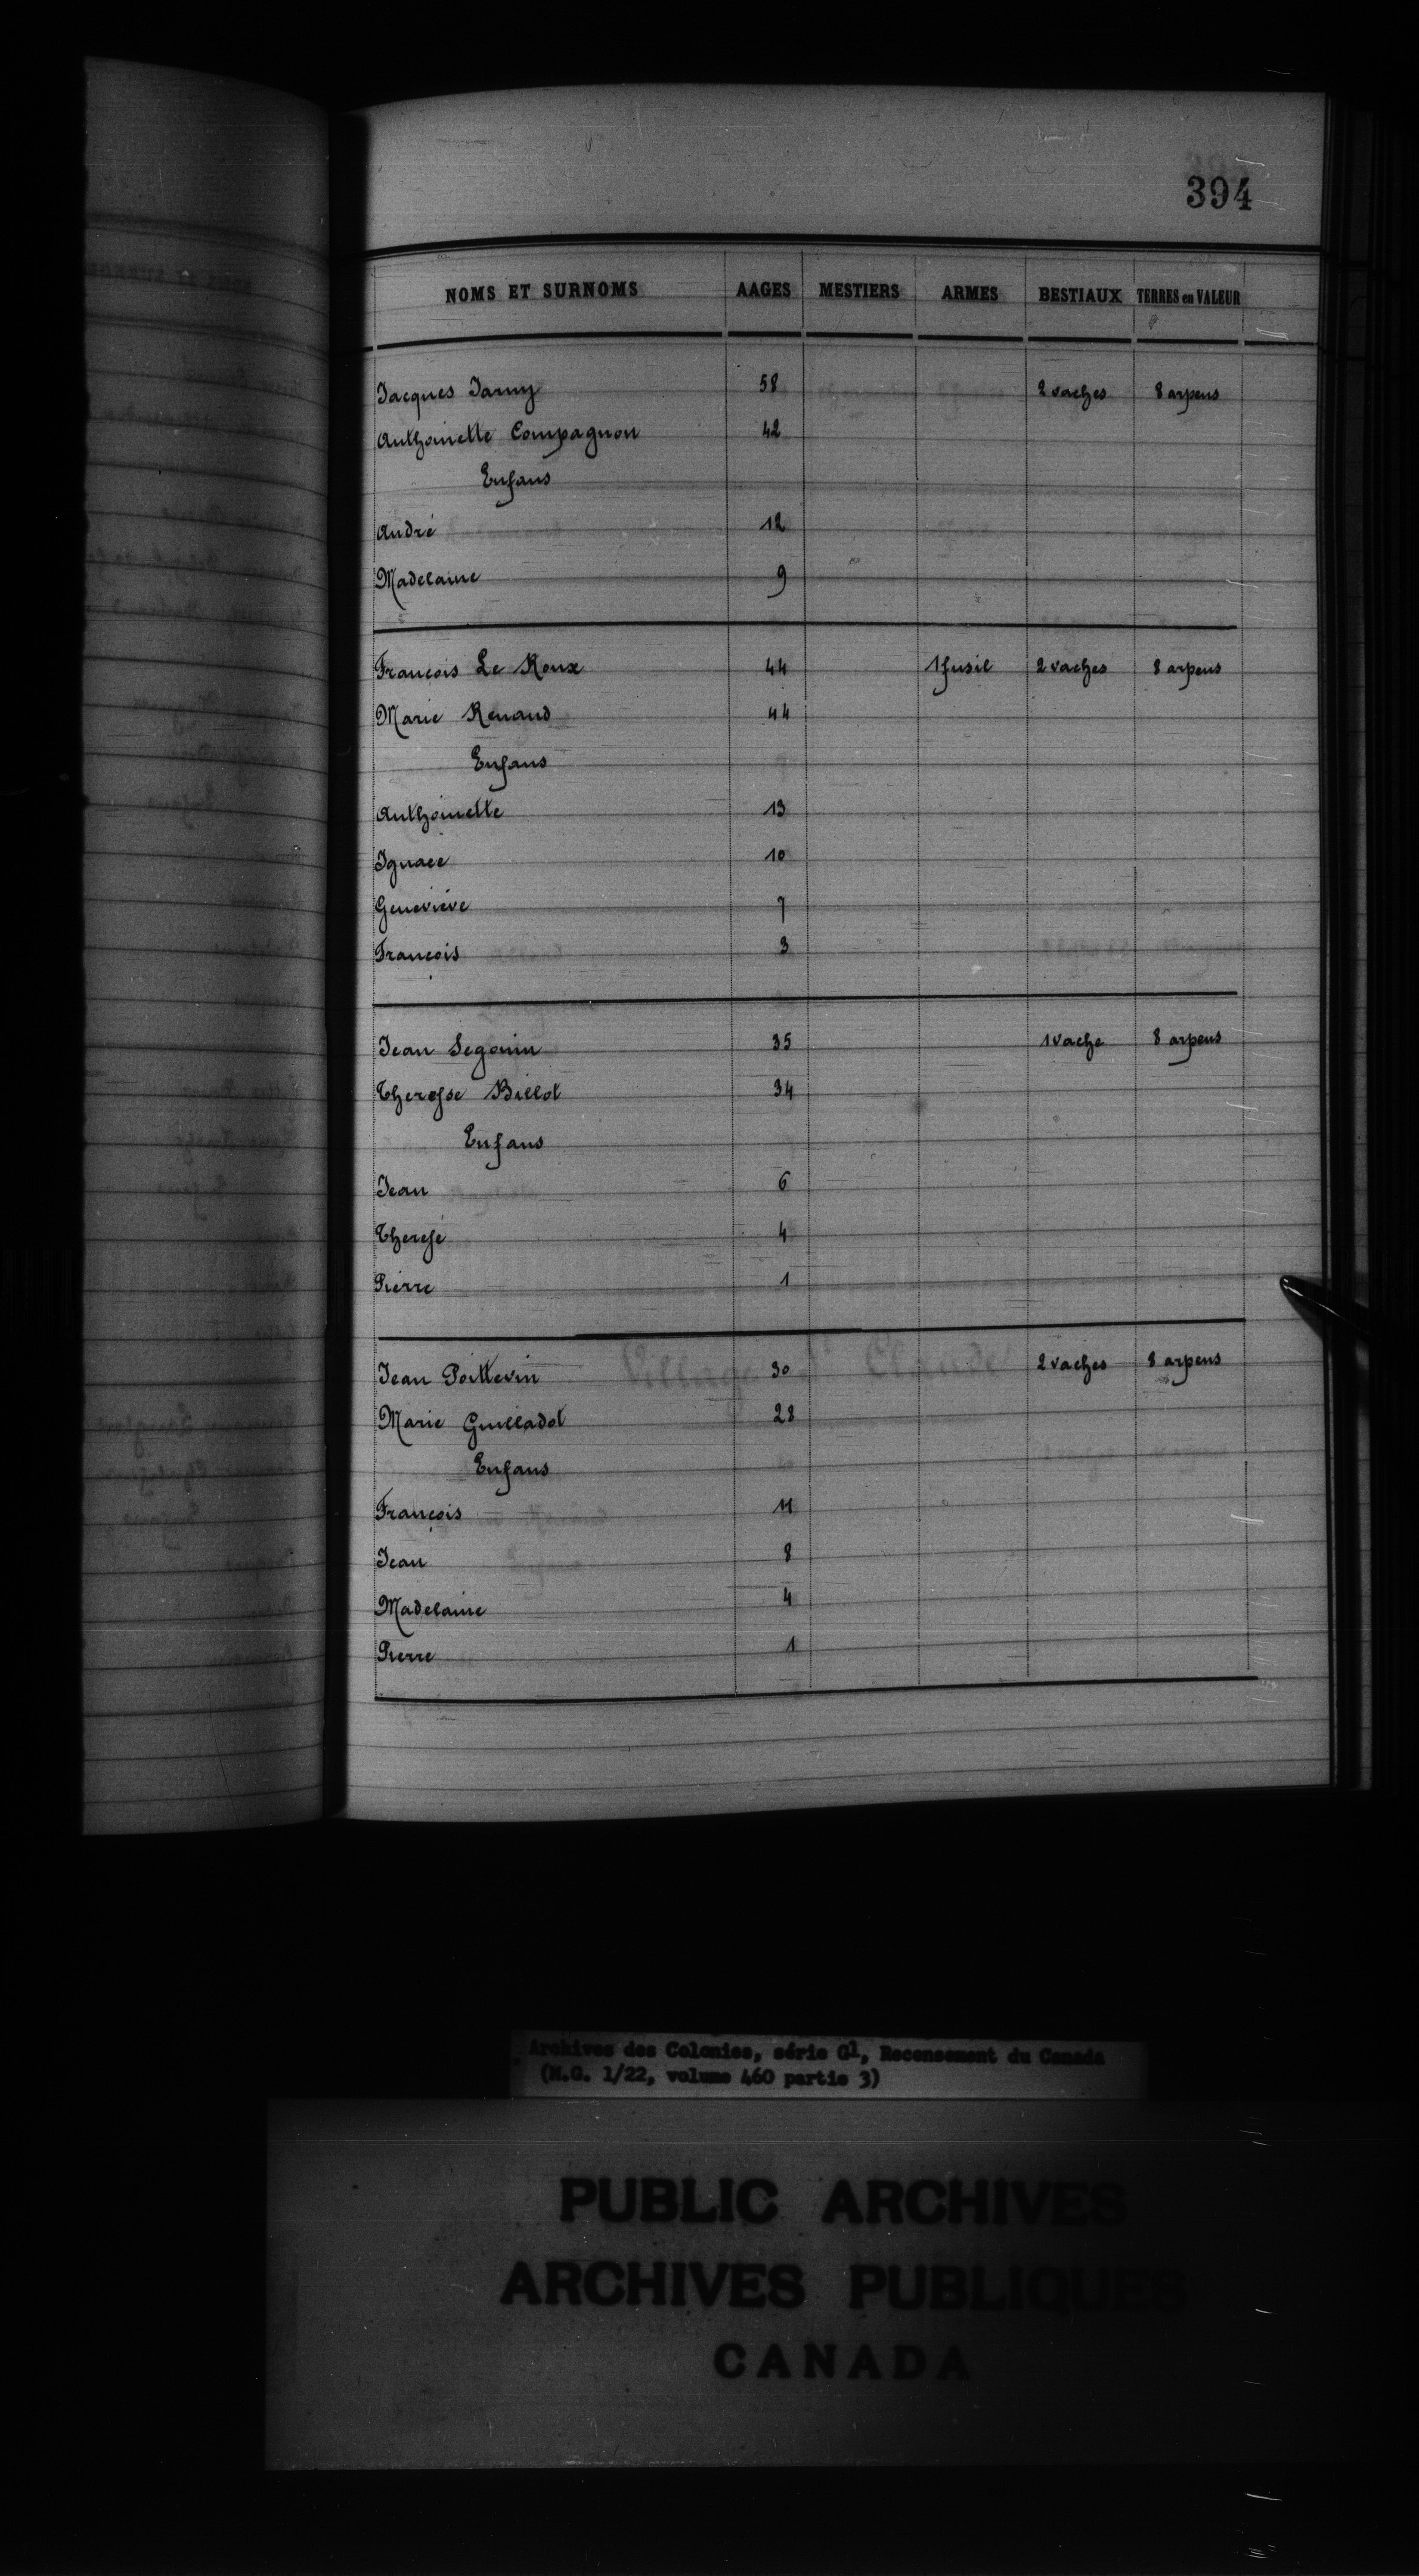 394
NOMS ET SURNOMS AAGES MESTIERS ARMES BESTIAUX TERRES en VALEUR
Jacques Jamy 58 2 vaches 8 arpens
Anthoinette Compagnon 42
Enfans
André 12
Madelaine 9
François Le Roux 44 1 fusil 2 vaches 8 arpens
Marie Renaud 44
Enfans
Anthoinette 13
Ignace 10
Geneviève 7
François 3
Jean Segouin 35 1 vache 8 arpens
Theresse Billot 34
Enfans
Jean 6
Therese 4
Pierre 1
Jean Poittevin 30 2 vaches 8 arpens
Marie Guilladot 28
Enfans
François 11
Jean 8
Madelaine 4
Pierre 1
Archives des Colonies, série G1, Recensement du Canada
(M.G. 1/22, volume 460 partie 3)
PUBLIC ARCHIVES
ARCHIVES PUBLIQUES
CANADA